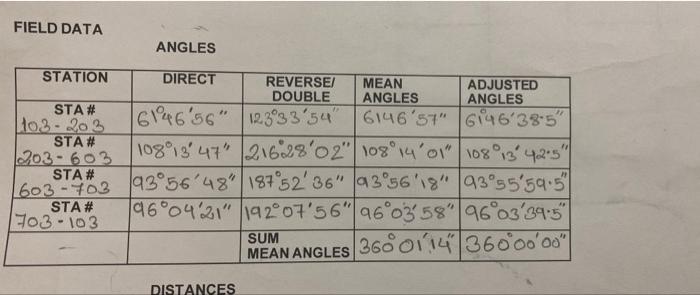 FIELD DATA
ANGLES
STATION DIRECT REVERSE/ DOUBLE MEAN ANGLES ADJUSTED ANGLES
STA # 103-203 61°46'56" 123°33'54" 6146'57" 61°46'38.5"
STA # 203-603 108°13'47" 216°28'02" 108°14'01" 108°13'42.5"
STA # 603-703 93°56'48" 187°52'36" 93°56'18" 93°55'59.5"
STA # 703-103 96°04'21" 192°07'56" 96°03'58" 96°03'39.5"
- SUM MEAN ANGLES 360°01'14" 360°00'00"
DISTANCES